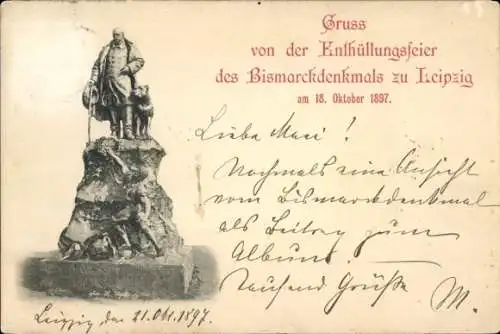 Gruss
von der Enthüllungsfeier
des Bismarckdenkmals zu Leipzig
am 18. Oktober 1897.
Liebe Mari!
Nochmals eine Ansicht
vom Bismarckdenkmal
als Beitrag zum
Album.
Tausend Grüße M.
Leipzig den 21. Okt. 1897.